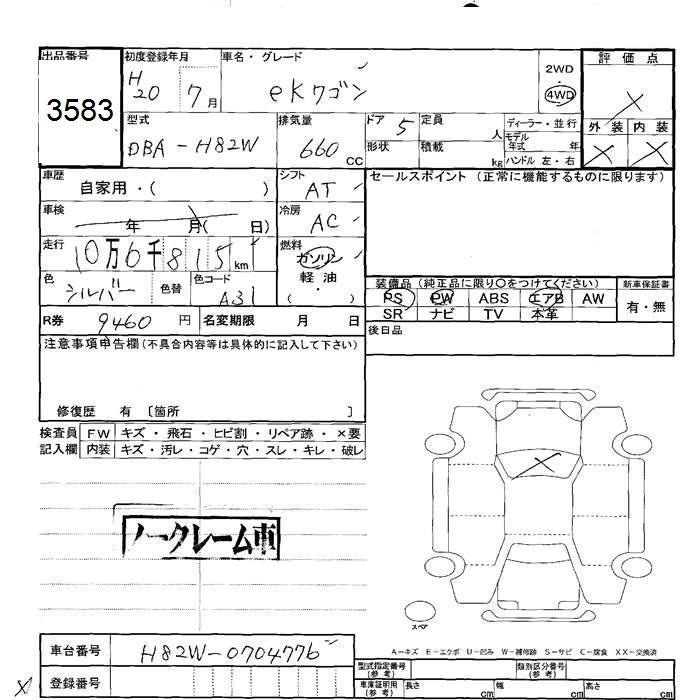 出品番号 初度登録年月 車名・グレード 評価点
3583 H20 7月 eKワゴン 2WD ・ 4WD ×
型式 排気量 ドア 定員 ディーラー・並行 外装 内装
DBA-H82W 660 CC 5 人 モデル年式 年 × ×
形状 積載 kg ハンドル 左・右
車歴 自家用・( ) シフト AT セールスポイント (正常に機能するものに限ります)
車検 年 月( 日) 冷房 AC
走行 10万6千815km 燃料 ガソリン・軽油・( )
色 シルバー 色替 色コード A31
装備品 (純正品に限り○をつけてください) 新車保証書
PS PW ABS エアB AW 有・無
SR ナビ TV 本革
R券 9460円 名変期限 月 日 後日品
注意事項申告欄(不具合内容等は具体的に記入して下さい)
修復歴 有 〔箇所 〕
検査員 FW キズ・飛石・ヒビ割・リペア跡・×要
記入欄 内装 キズ・汚レ・コゲ・穴・スレ・キレ・破レ
×
ノークレーム車
スペア
A-キズ E-エクボ U-凹み W-補修跡 S-サビ C-腐食 XX-交換済
車台番号 H82W-0704776
型式指定番号(参考) 類別区分番号(参考)
登録番号
車庫証明用(参考) 長さ cm 幅 cm 高さ cm